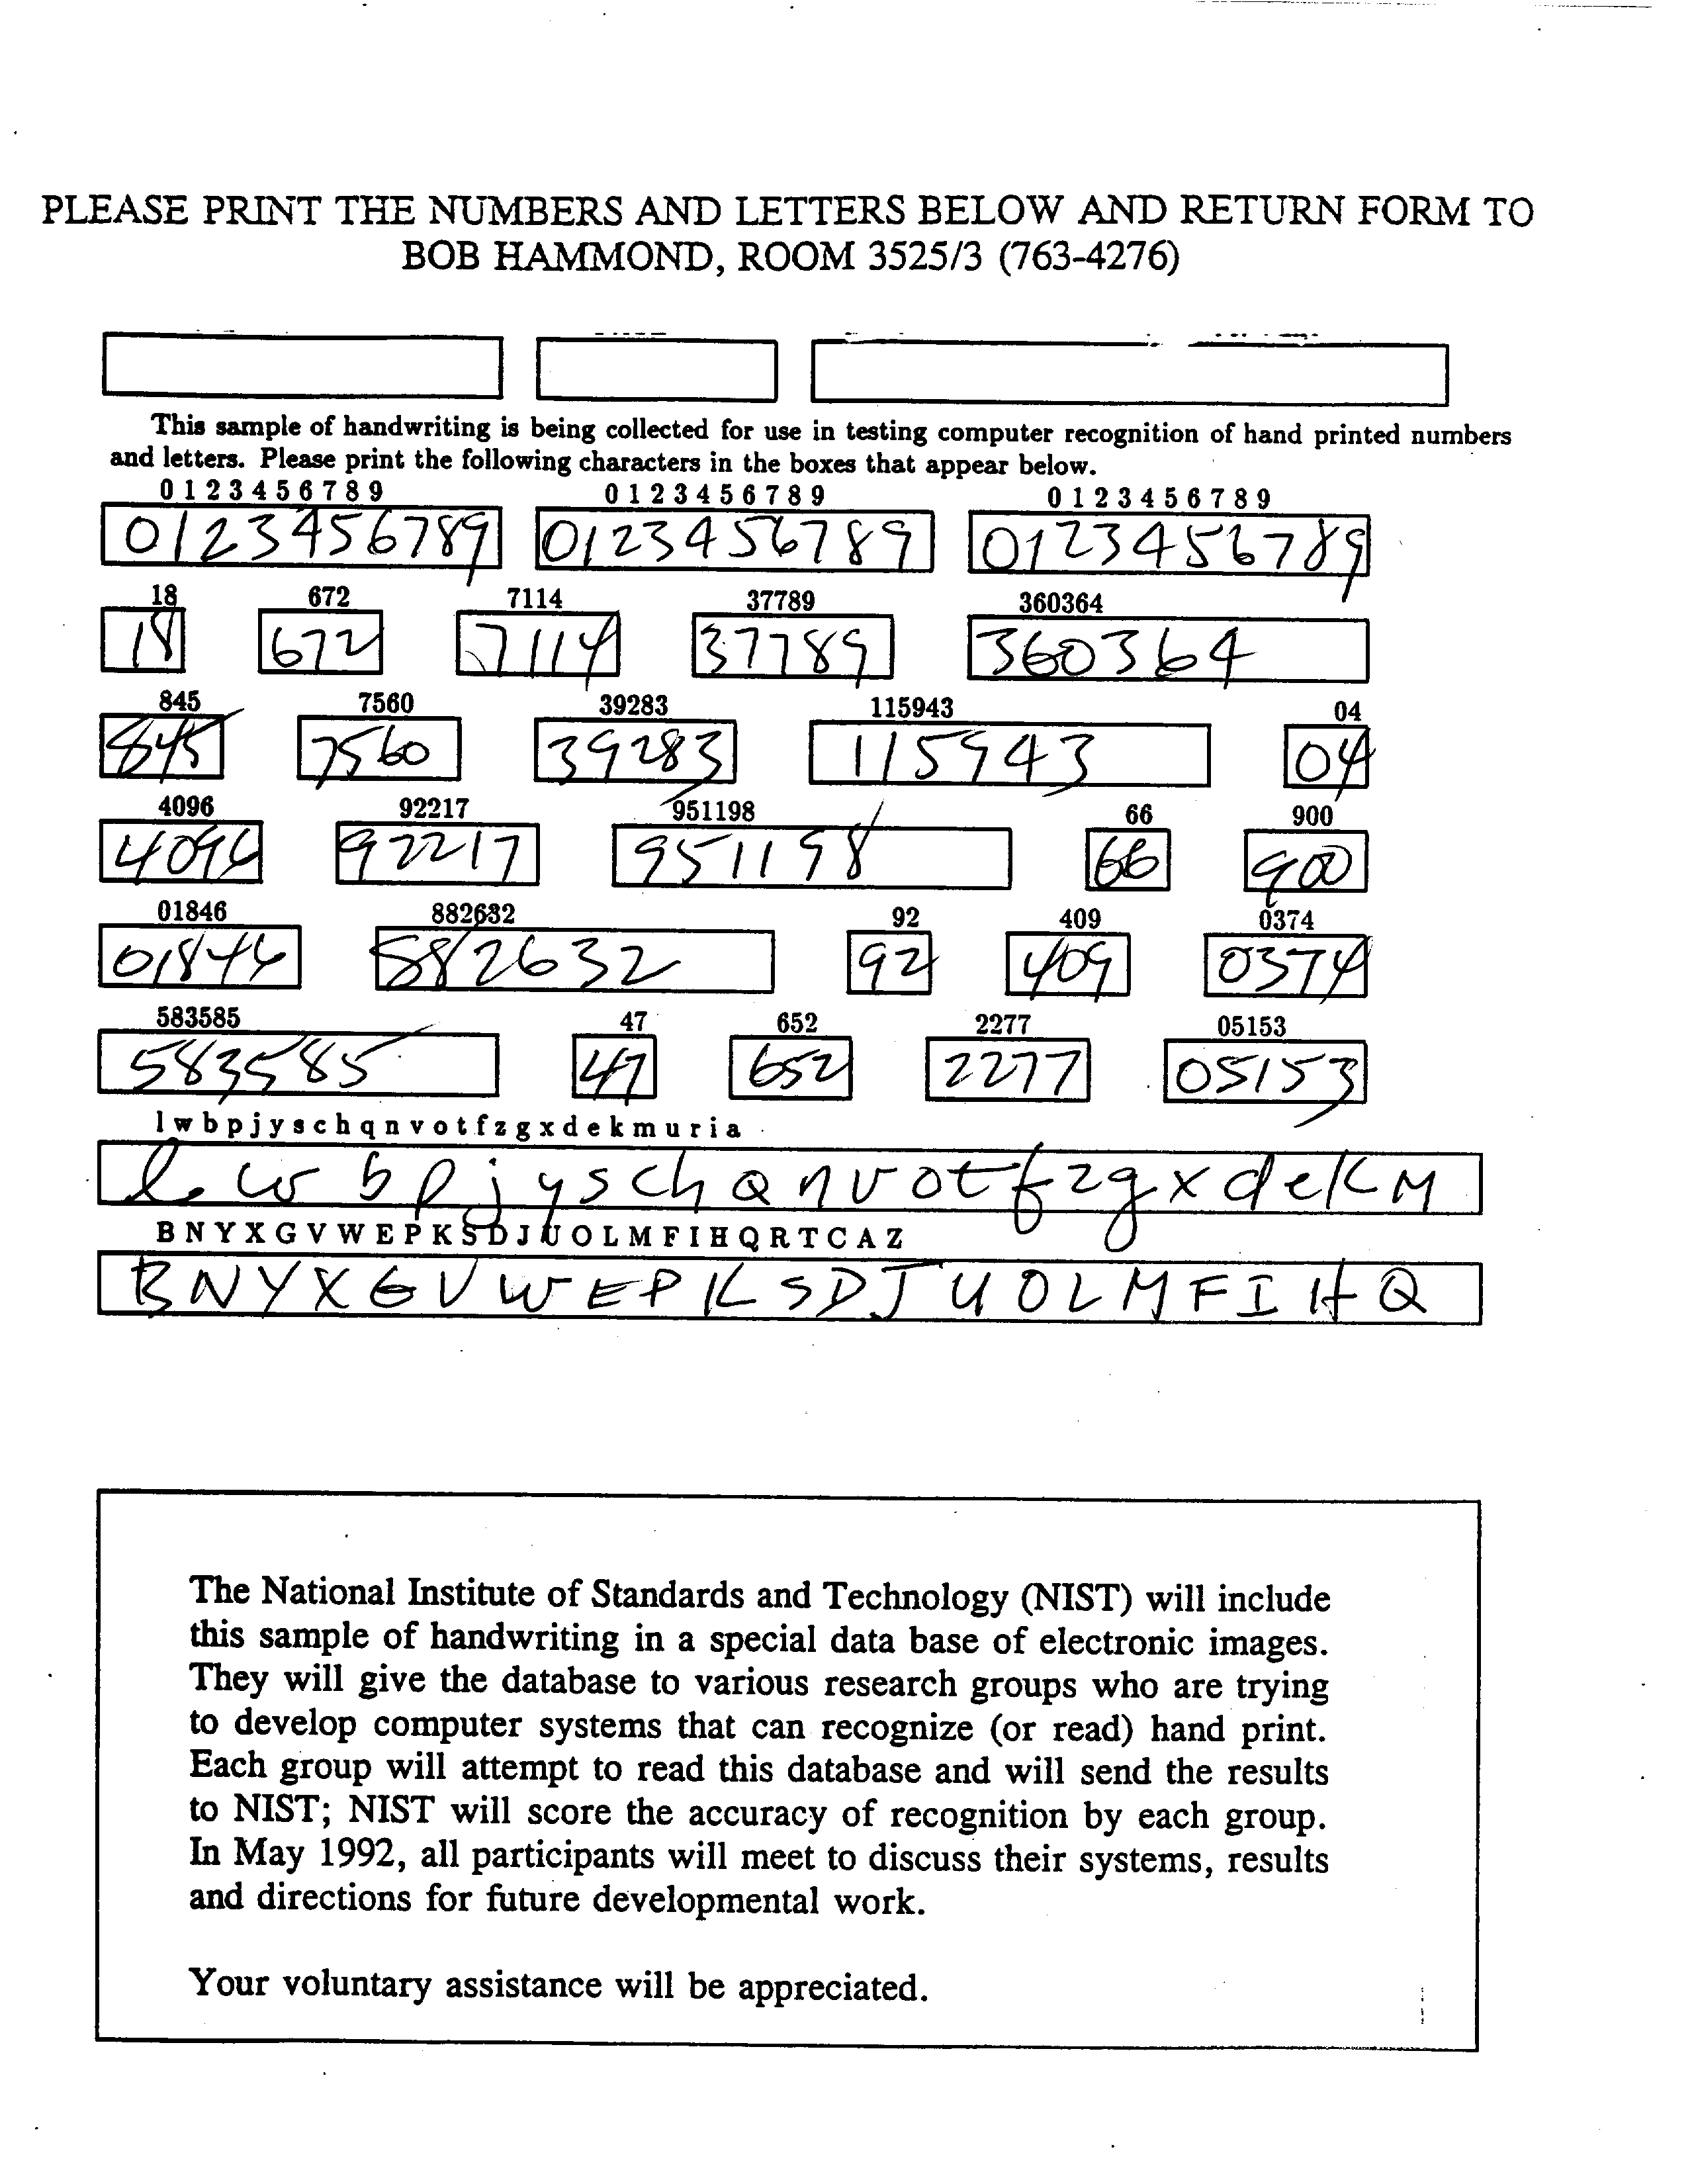 PLEASE PRINT THE NUMBERS AND LETTERS BELOW AND RETURN FORM TO
BOB HAMMOND, ROOM 3525/3 (763-4276)
This sample of handwriting is being collected for use in testing computer recognition of hand printed numbers
and letters. Please print the following characters in the boxes that appear below.
0 1 2 3 4 5 6 7 8 9 0 1 2 3 4 5 6 7 8 9 0 1 2 3 4 5 6 7 8 9
0123456789 0123456789 0123456789
18 672 7114 37789 360364
18 672 7114 37789 360364
845 7560 39283 115943 04
845 7560 39283 115943 04
4096 92217 951198 66 900
4096 92217 951198 66 900
01846 882632 92 409 0374
01846 882632 92 409 0374
583585 47 652 2277 05153
583585 47 652 2277 05153
l w b p j y s c h q n v o t f z g x d e k m u r i a
l w b p j y s c h Q n v o t f z g x d e K M
B N Y X G V W E P K S D J U O L M F I H Q R T C A Z
B N Y X G V W E P K S D J U O L M F I H Q
The National Institute of Standards and Technology (NIST) will include
this sample of handwriting in a special data base of electronic images.
They will give the database to various research groups who are trying
to develop computer systems that can recognize (or read) hand print.
Each group will attempt to read this database and will send the results
to NIST; NIST will score the accuracy of recognition by each group.
In May 1992, all participants will meet to discuss their systems, results
and directions for future developmental work.
Your voluntary assistance will be appreciated.